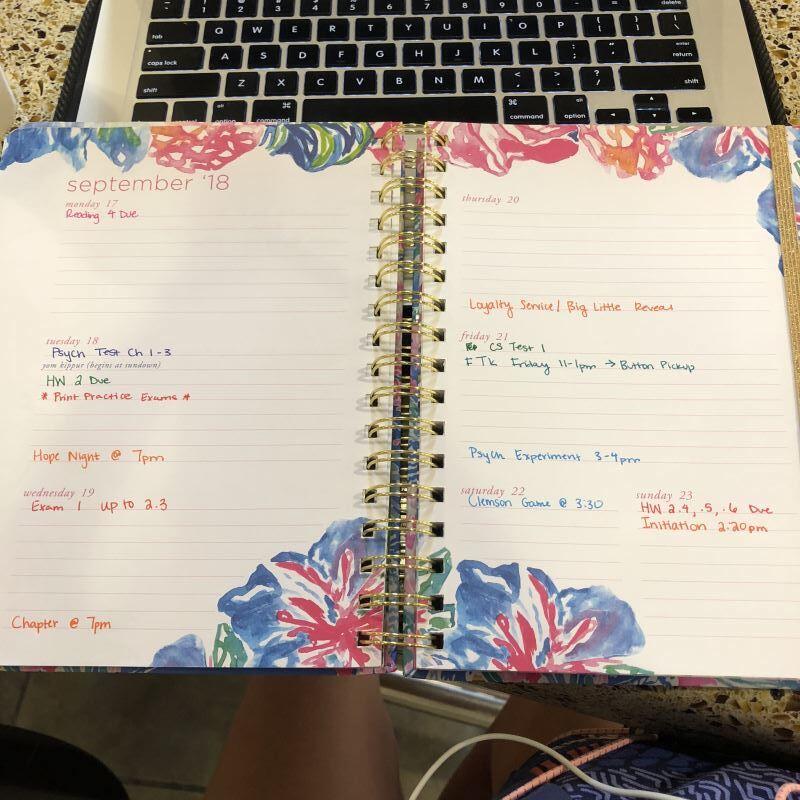 ! 1 @ 2 # 3 $ 4 % 5 ^ 6 & 7 * 8 ( 9 ) 0 delete
tab Q W E R T Y U I O P { [ } ] | \
caps lock A S D F G H J K L : ; " ' enter return
shift Z X C V B N M < , > . ? / shift
control alt option ⌘ command ⌘ command alt option
september '18
monday 17
Reading 4 Due
tuesday 18
Psych Test Ch 1-3
yom kippur (begins at sundown)
HW 2 Due
* Print Practice Exams *
Hope Night @ 7pm
wednesday 19
Exam 1 up to 2.3
Chapter @ 7pm
thursday 20
Loyalty Service/ Big Little Reveal
friday 21
CS Test 1
FTK Friday 11-1pm → Button Pickup
Psych Experiment 3-4pm
saturday 22
Clemson Game @ 3:30
sunday 23
HW 2.4, .5, .6 Due
Initiation 2:20pm